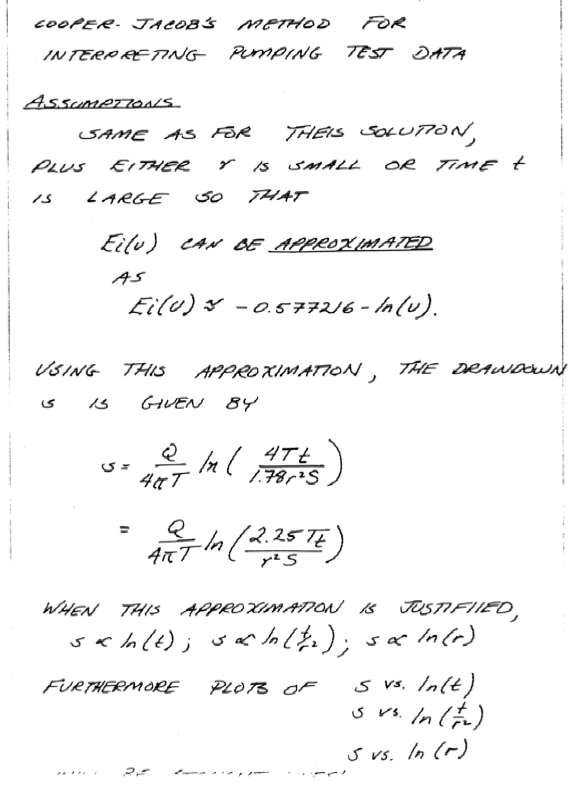 COOPER-JACOB'S METHOD FOR
INTERPRETING PUMPING TEST DATA
ASSUMPTIONS
SAME AS FOR THEIS SOLUTION,
PLUS EITHER r IS SMALL OR TIME t
IS LARGE SO THAT
Ei(u) CAN BE APPROXIMATED
AS
Ei(u) ≈ -0.577216 - ln(u).
USING THIS APPROXIMATION, THE DRAWDOWN
s IS GIVEN BY
s = Q/4πT ln(4Tt/1.78r²S)
= Q/4πT ln(2.25Tt/r²S)
WHEN THIS APPROXIMATION IS JUSTIFIIED,
s ∝ ln(t); s ∝ ln(t/r²); s ∝ ln(r)
FURTHERMORE PLOTS OF s vs. ln(t)
s vs. ln(t/r²)
s vs. ln(r)